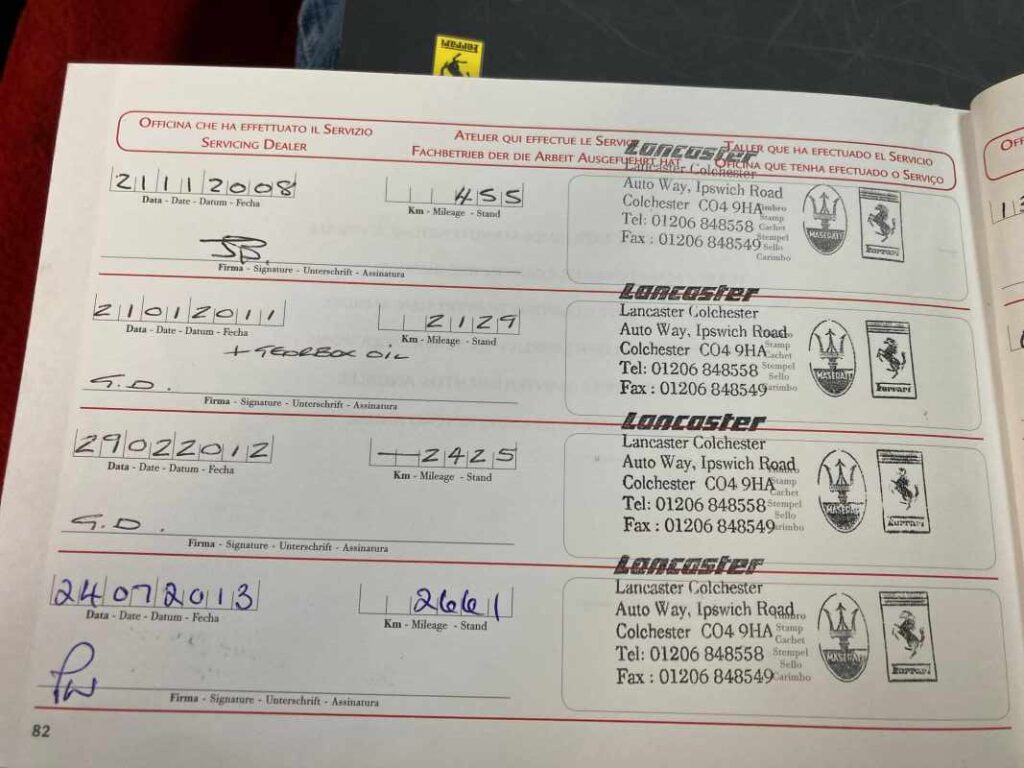 Ferrari
OFFICINA CHE HA EFFETTUATO IL SERVIZIO
SERVICING DEALER
ATELIER QUI EFFECTUE LE SERVICE
FACHBETRIEB DER DIE ARBEIT AUSGEFUEHRT HAT
TALLER QUE HA EFECTUADO EL SERVICIO
OFICINA QUE TENHA EFECTUADO O SERVIÇO
21112008
Data - Date - Datum - Fecha
455
Km - Mileage - Stand
Firma - Signature - Unterschrift - Assinatura
Lancaster
Lancaster Colchester
Auto Way, Ipswich Road
Colchester CO4 9HA
Tel: 01206 848558
Fax : 01206 848549
Timbro
Stamp
Cachet
Stempel
Sello
Carimbo
MASERATI
Ferrari
21012011
Data - Date - Datum - Fecha
2129
Km - Mileage - Stand
+ GEARBOX OIL
G.D.
Firma - Signature - Unterschrift - Assinatura
Lancaster
Lancaster Colchester
Auto Way, Ipswich Road
Colchester CO4 9HA
Tel: 01206 848558
Fax : 01206 848549
Timbro
Stamp
Cachet
Stempel
Sello
Carimbo
MASERATI
Ferrari
29022012
Data - Date - Datum - Fecha
2425
Km - Mileage - Stand
G.D.
Firma - Signature - Unterschrift - Assinatura
Lancaster
Lancaster Colchester
Auto Way, Ipswich Road
Colchester CO4 9HA
Tel: 01206 848558
Fax : 01206 848549
Stamp
Cachet
Stempel
Sello
Carimbo
MASERATI
Ferrari
24072013
Data - Date - Datum - Fecha
2661
Km - Mileage - Stand
PW
Firma - Signature - Unterschrift - Assinatura
Lancaster
Lancaster Colchester
Auto Way, Ipswich Road
Colchester CO4 9HA
Tel: 01206 848558
Fax : 01206 848549
Timbro
Stamp
Cachet
Stempel
Sello
Carimbo
MASERATI
Ferrari
82